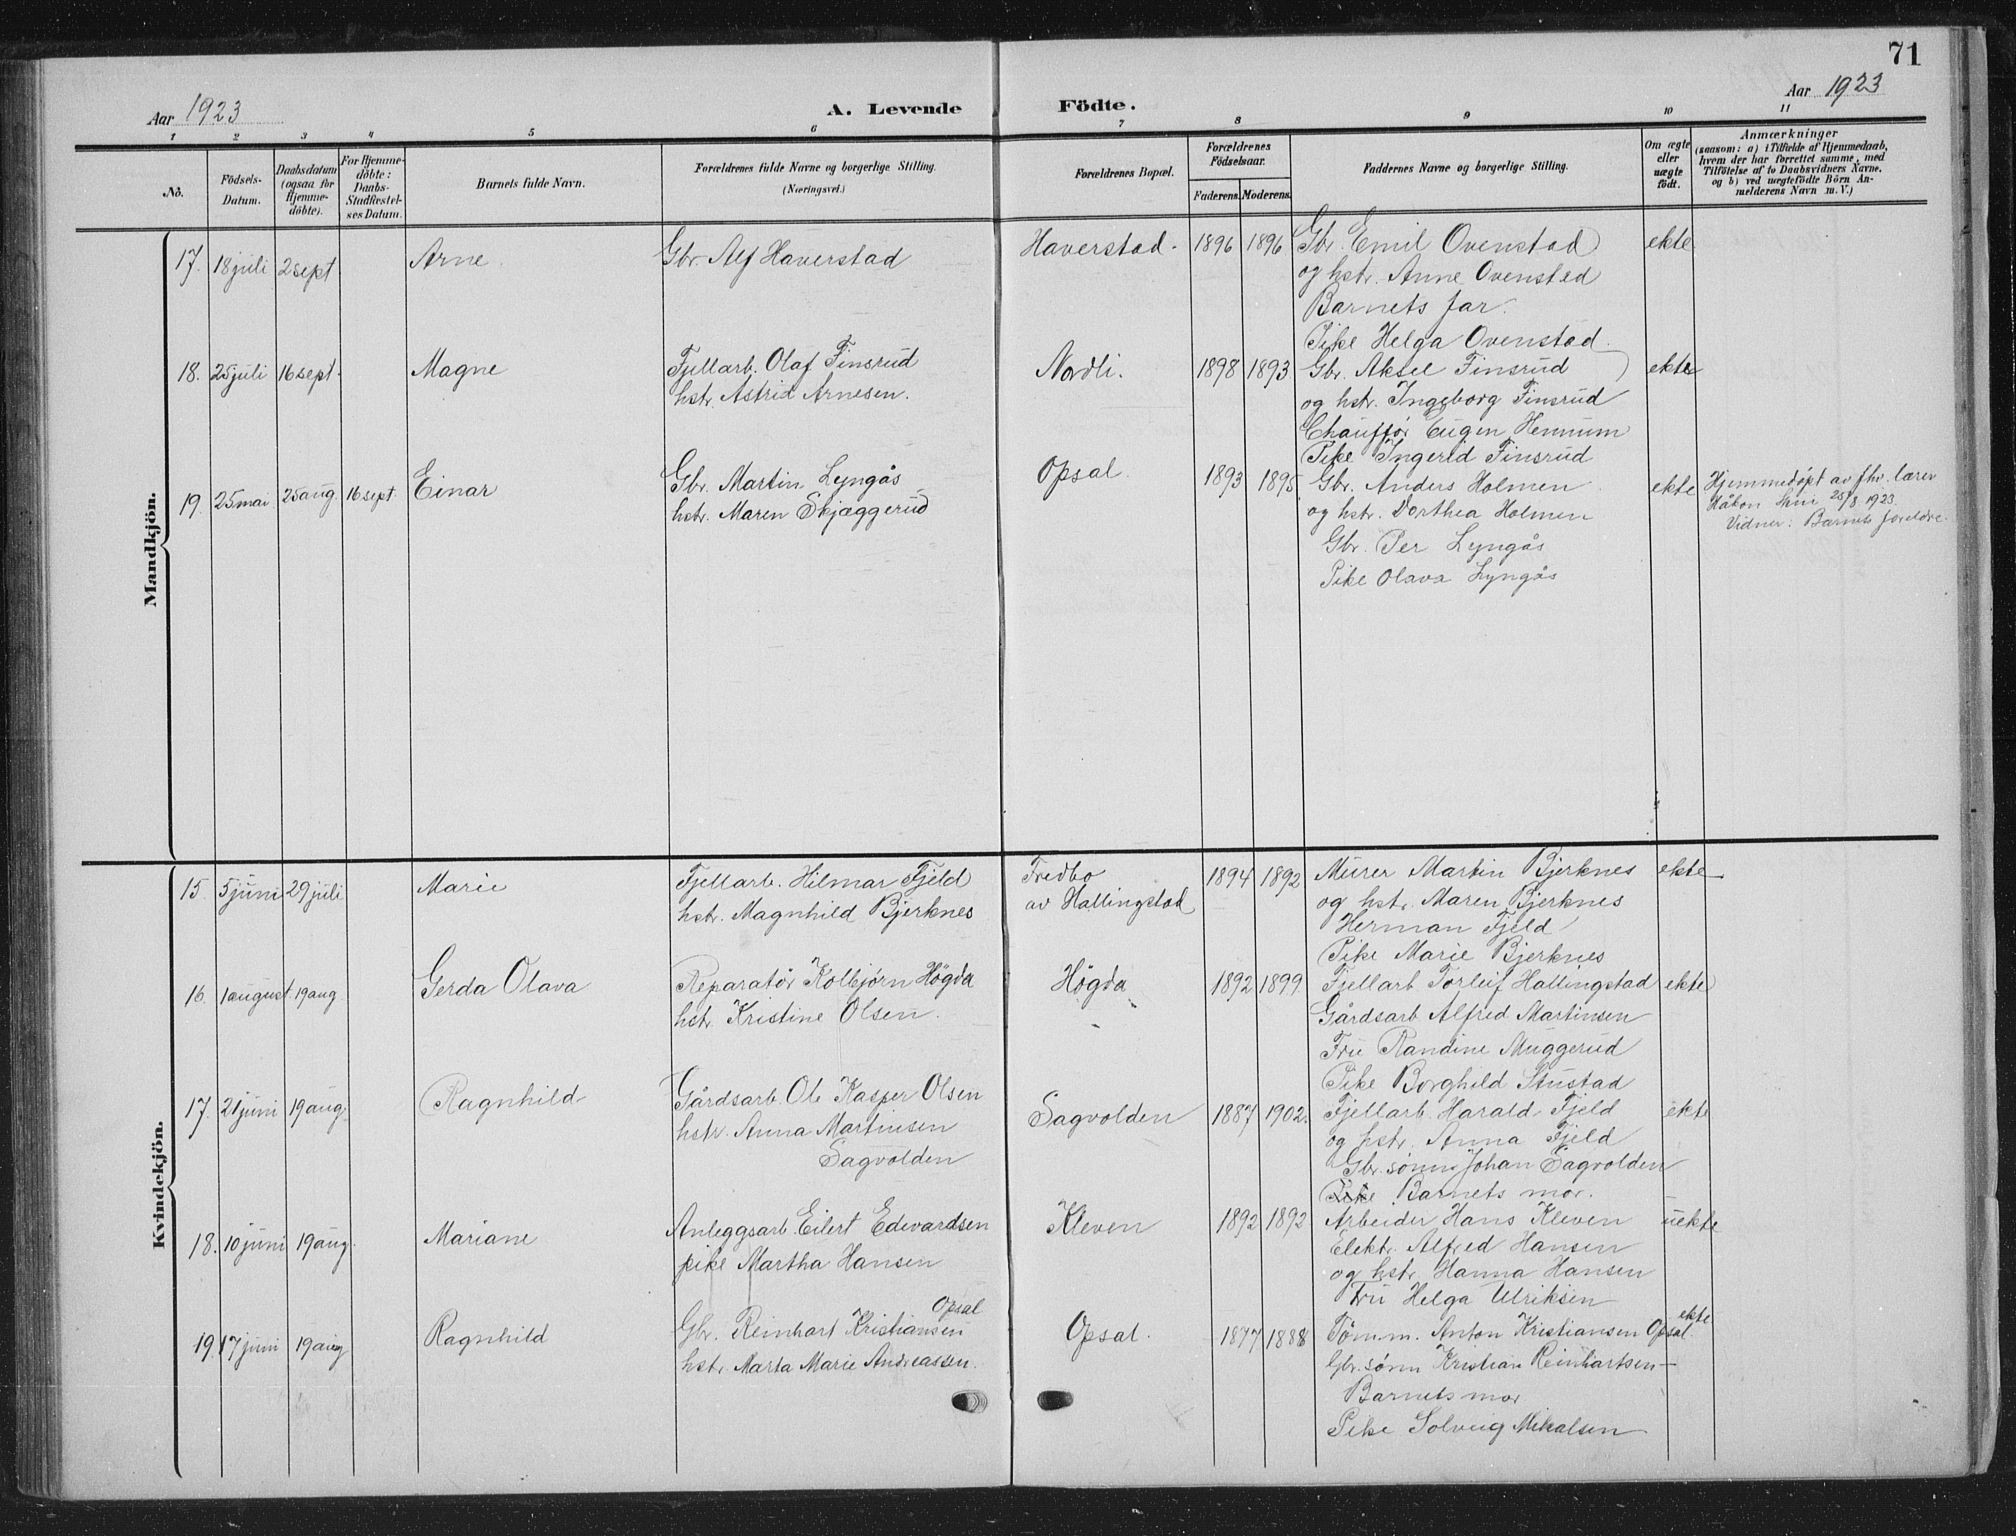 71
Aar 1923
A. Levende Födte.
Aar 1923
1 2 3 4 5 6 7 8 9 10 11
No.
Födsels-Datum.
Daabsdatum (ogsaa for Hjemmedöbte).
For Hjemmedöbte: Daabs-Stadfæstelses Datum.
Barnets fulde Navn.
Forældrenes fulde Navne og borgerlige Stilling.
(Næringsvei.)
Forældrenes Bopæl.
Forældrenes Födselsaar.
Faderens. Moderens.
Faddernes Navne og borgerlige Stilling.
Om ægte eller uægte födt.
Anmærkninger
(saasom: a) i Tilfælde af Hjemmedaab, hvem der har forrettet samme, med Tilföielse af to Daabsvidners Navne, og b) ved uægtefödte Börn Anmelderens Navn m. V.)
Mandkjön.
17. 18 juli 2 sept Arne. Gbr. Alf Haverstad Haverstad. 1896 1896 Gbr. Emil Ovenstad ekte
og hstr. Anne Ovenstad
Barnets far.
Pike Helga Ovenstad.
18. 25 juli 16 sept. Magne Fjellarb. Olaf Finsrud Nordli. 1898 1893 Gbr. Aksel Finsrud ekte
hstr. Astrid Arnesen. og hstr. Ingeborg Finsrud
Chauffør Eugen Hennum
Pike Ingerid Finsrud
19. 25 mai 25 aug. 16 sept. Einar Gbr. Martin Lyngås Opsal. 1893 1895 Gbr. Anders Holmen ekte Hjemmedøpt av fhv. lærer
hstr. Maren Skjæggerud og hstr. Dorthea Holmen Håkon 25/8 1923.
Gbr. Per Lyngås Vidner: Barnets foreldre.
Pike Olava Lyngås
Kvindekjön.
15. 5 juni 29 juli Marie Fjellarb. Hilmar Fjeld Fredbo 1894 1892 Murer Martin Bjerknes ekte
hstr. Magnhild Bjerknes av Hallingstad og hstr. Maren Bjerknes
Herman Fjeld
Pike Marie Bjerknes
16. 1 august 19 aug Gerda Olava Reparatør Kolbjørn Högda Högda 1892 1899 Fjellarb Torleif Hallingstad ekte
hstr. Kristine Olsen. Gårdsarb Alfred Martinsen
Fru Randine Muggerud
Pike Borghild Stustad
17. 21 juni 19 aug. Ragnhild Gårdsarb. Ole Kasper Olsen Sagvolden 1887 1902. Fjellarb. Harald Fjeld ekte
hstr. Anna Martinsen og hstr. Anna Fjeld
Sagvolden Gbr. sønn Johan Sagvolden
Pike Barnets mor.
18. 10 juni 19 aug. Mariane Anleggsarb. Eilert Edvardsen Kleven 1892 1892 Arbeider Hans Kleven uekte
pike Martha Hansen Elektr. Alfred Hansen
og hstr. Hanna Hansen
Fru Helga Ulriksen
19. 17 juni 19 aug Ragnhild Gbr. Reinhart Kristiansen Opsal Opsal. 1877 1888 Tømm. Anton Kristiansen Opsal. ekte
hstr. Marta Marie Andreassen. Gbr. sønn Kristian Reinhartsen
Barnets mor
Pike Solveig Mikalsen